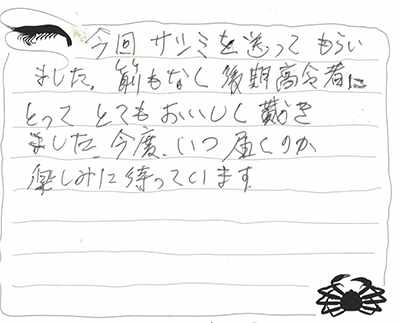 今回サシミを送ってもらい
ました。前もなく後期高令者に
とってとてもおいしく戴らき
ました、今度、いつ届くのか
楽しみに待っています